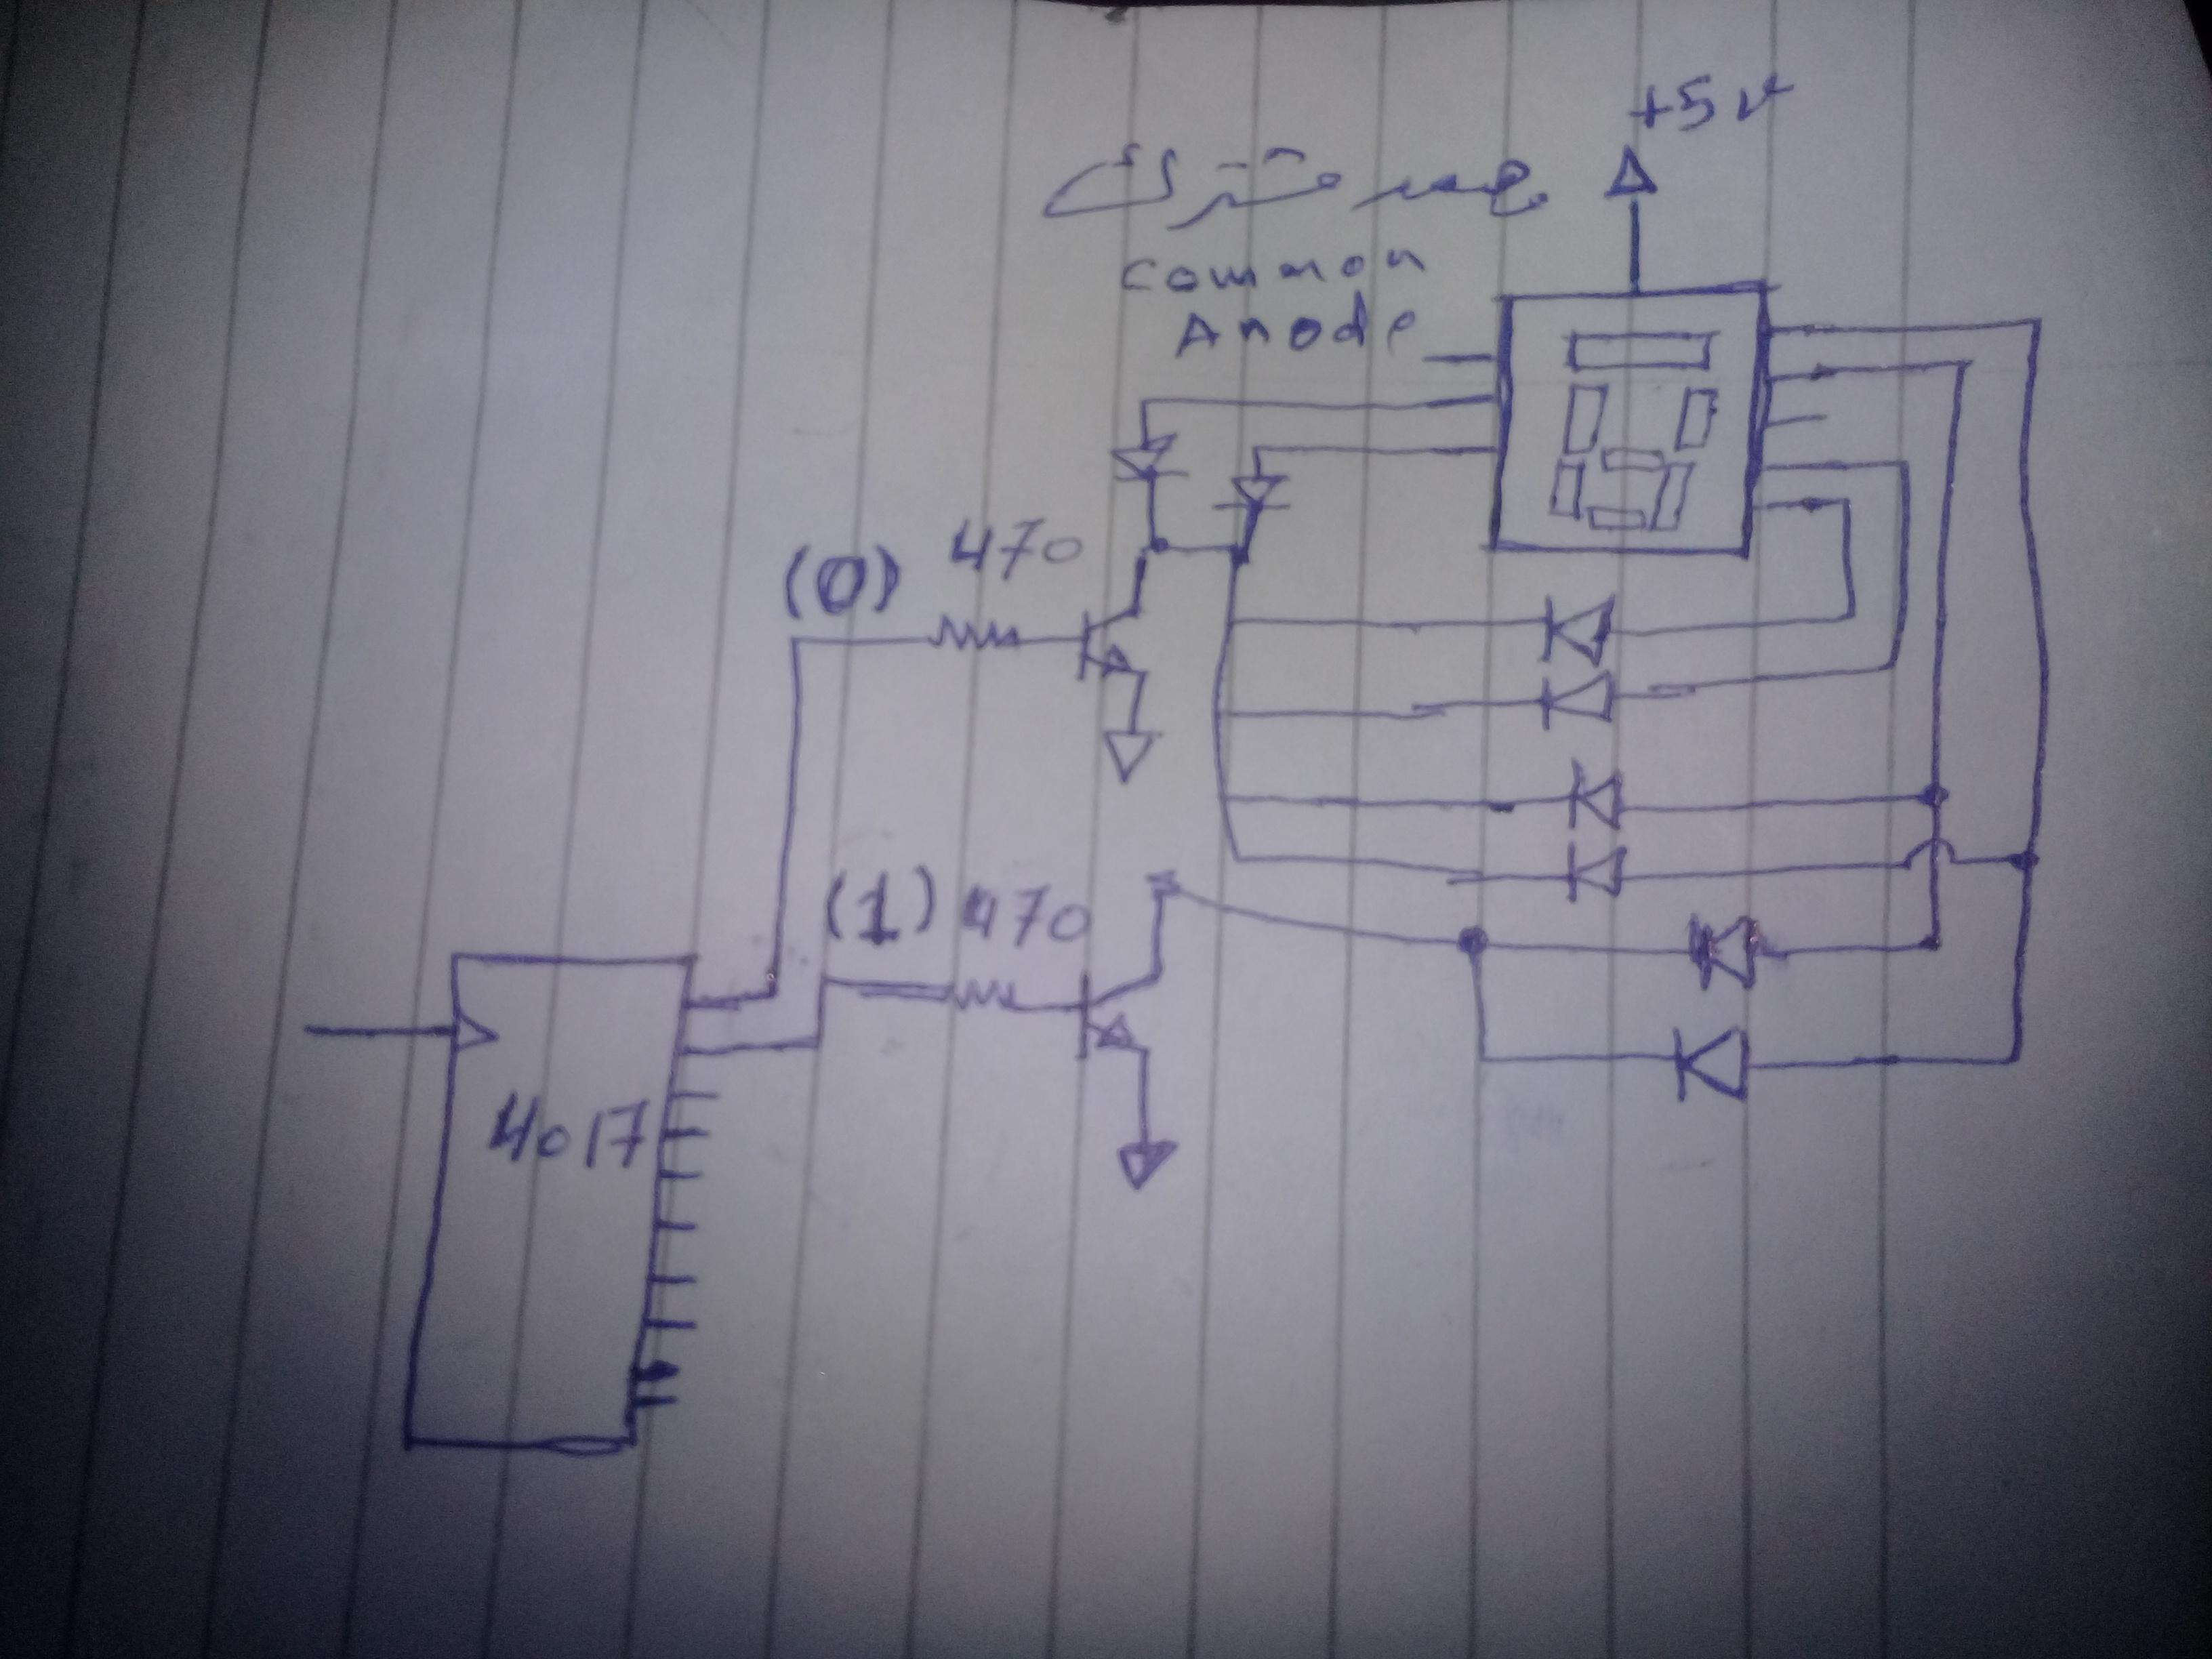 +5v
مشترك
Common
Anode
(0) 470
(1) 470
4017